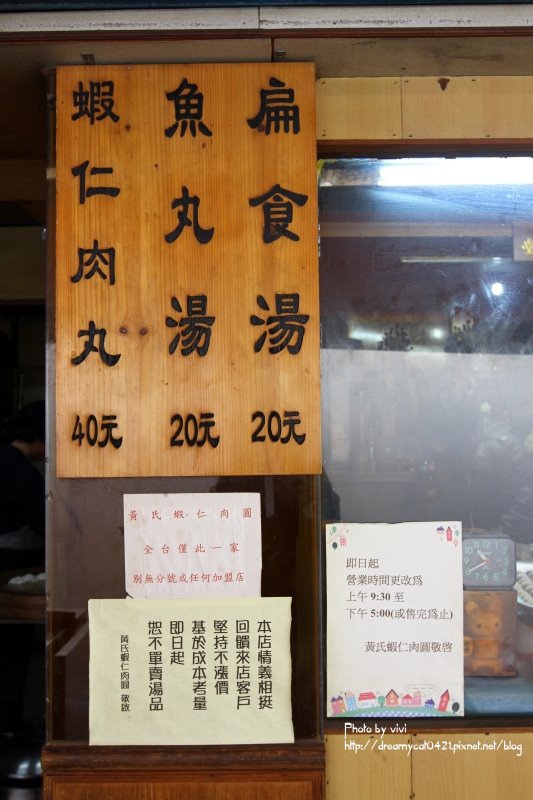 扁食湯 20元
魚丸湯 20元
蝦仁肉丸 40元
黃氏蝦仁肉圓
全台僅此一家
別無分號或任何加盟店
本店情義相挺
回饋來店客戶
堅持不漲價
基於成本考量
即日起
恕不單賣湯品
黃氏蝦仁肉圓 敬啟
即日起
營業時間更改為
上午 9:30 至
下午 5:00(或售完為止)
黃氏蝦仁肉圓敬啓
Photo by vivi
http://dreamycat0421.pixnet.net/blog